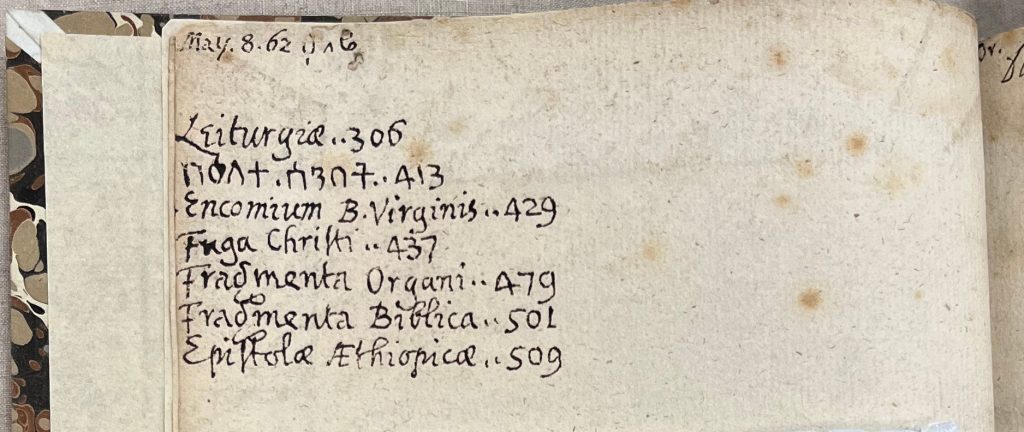 May. 8. 62
Leiturgiæ..306
በዕለተ.ሰንበት..413
Encomium B. Virginis..429
Fuga Christi..437
Fragmenta Organi..479
Fragmenta Biblica..501
Epistolæ Æthiopicæ..509